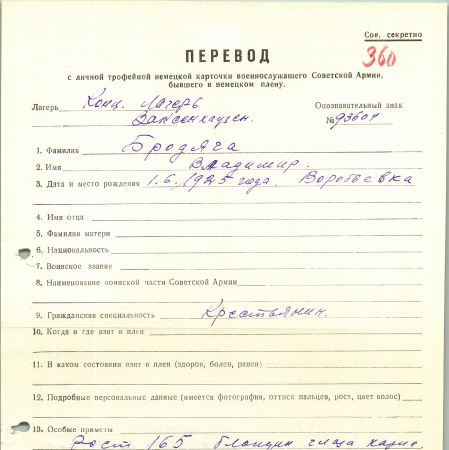 Сов. секретно
360
ПЕРЕВОД
с личной трофейной немецкой карточки военнослужащего Советской Армии,
бывшего в немецком плену.
Лагерь Конц. Лагерь Опознавательный знак
Заксенхаузен. № 93604
1. Фамилия Бродяга
2. Имя Владимир.
3. Дата и место рождения 1.6.1925 года. Воробьевка
4. Имя отца
5. Фамилия матери
6. Национальность
7. Воинское звание
8. Наименование воинской части Советской Армии
9. Гражданская специальность Крестьянин.
10. Когда и где взят в плен
11. В каком состоянии взят в плен (здоров, болен, ранен)
12. Подробные персональные данные (имеется фотография, оттиск пальцев, рост, цвет волос)
13. Особые приметы
Рост 165 блондин глаза карие.